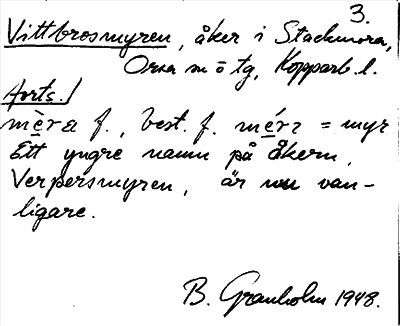 3.
Vittbrosmyren, åker i Stackmora,
Orsa sn ö tg, Kopparb. l.
Forts.
mèra f., best. f. mérɿ = myr
Ett yngre namn på åkern,
Verpersmyren, är nu van-
ligare.
B. Granholm 1948.